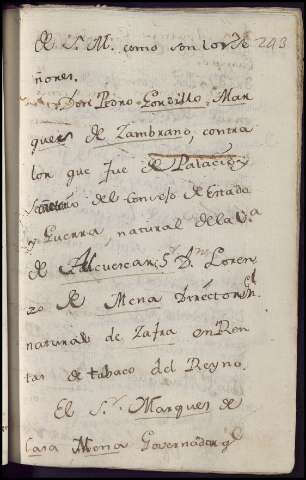 de S. M. como son los de 293
ñores.
Don Pedro Gordillo, Mar
ques de Zambrano, contra
lor que fue de Palacio y
del Consejo de Estado
y Guerra, natural de la V.a
de Alcuescar; S.r D.n Loren
zo de Mena Director Gl.
natural de Zafra en Ren
tas de tabaco del Reyno.
El S.r Marques de
Casa Mena Governador q.e